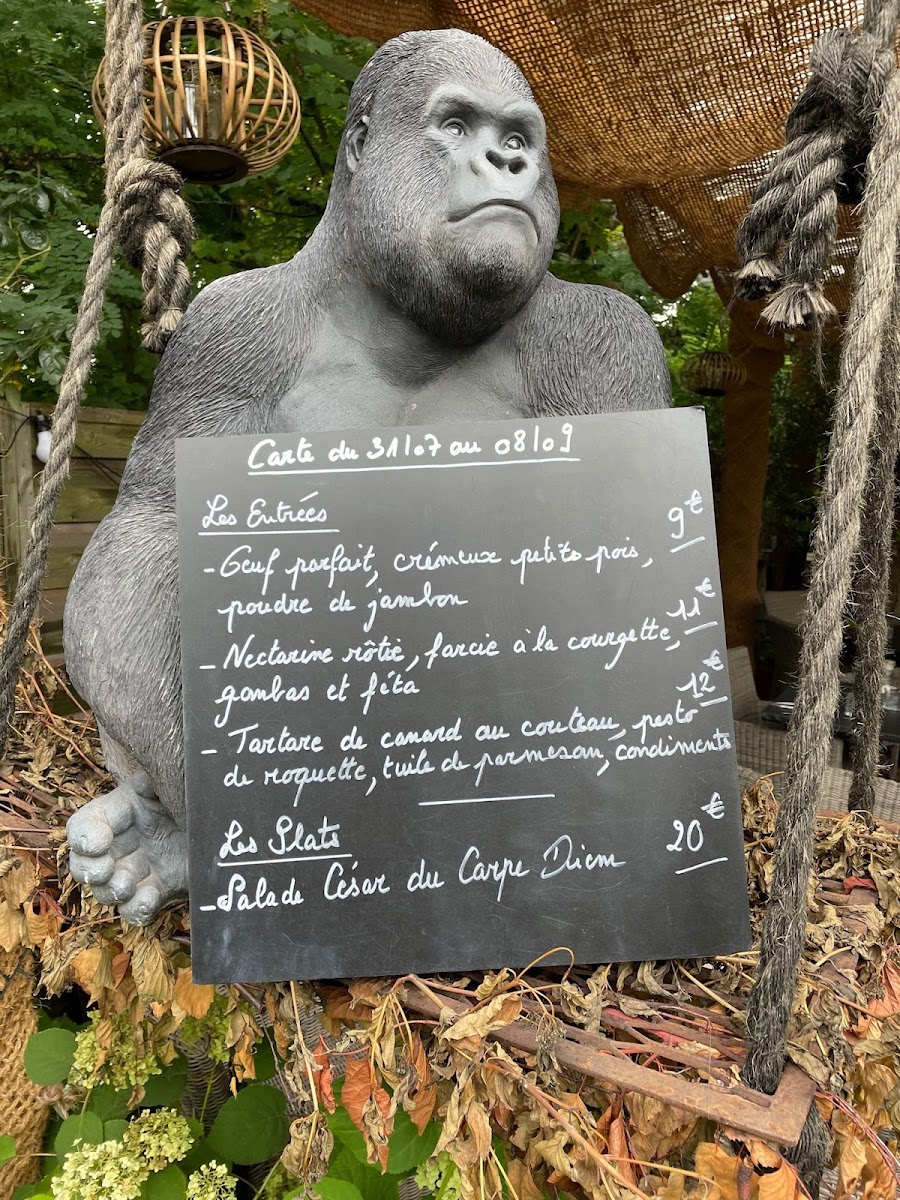 Carte du 31/07 au 08/09
Les Entrées
- Oeuf parfait, crémeux petits pois, 9€
poudre de jambon
- Nectarine rôtie, farcie à la courgette, 11€
gambas et féta
- Tartare de canard au couteau, pesto 12€
de roquette, tuile de parmesan, condiments
Les Plats
- Salade César du Carpe Diem 20€